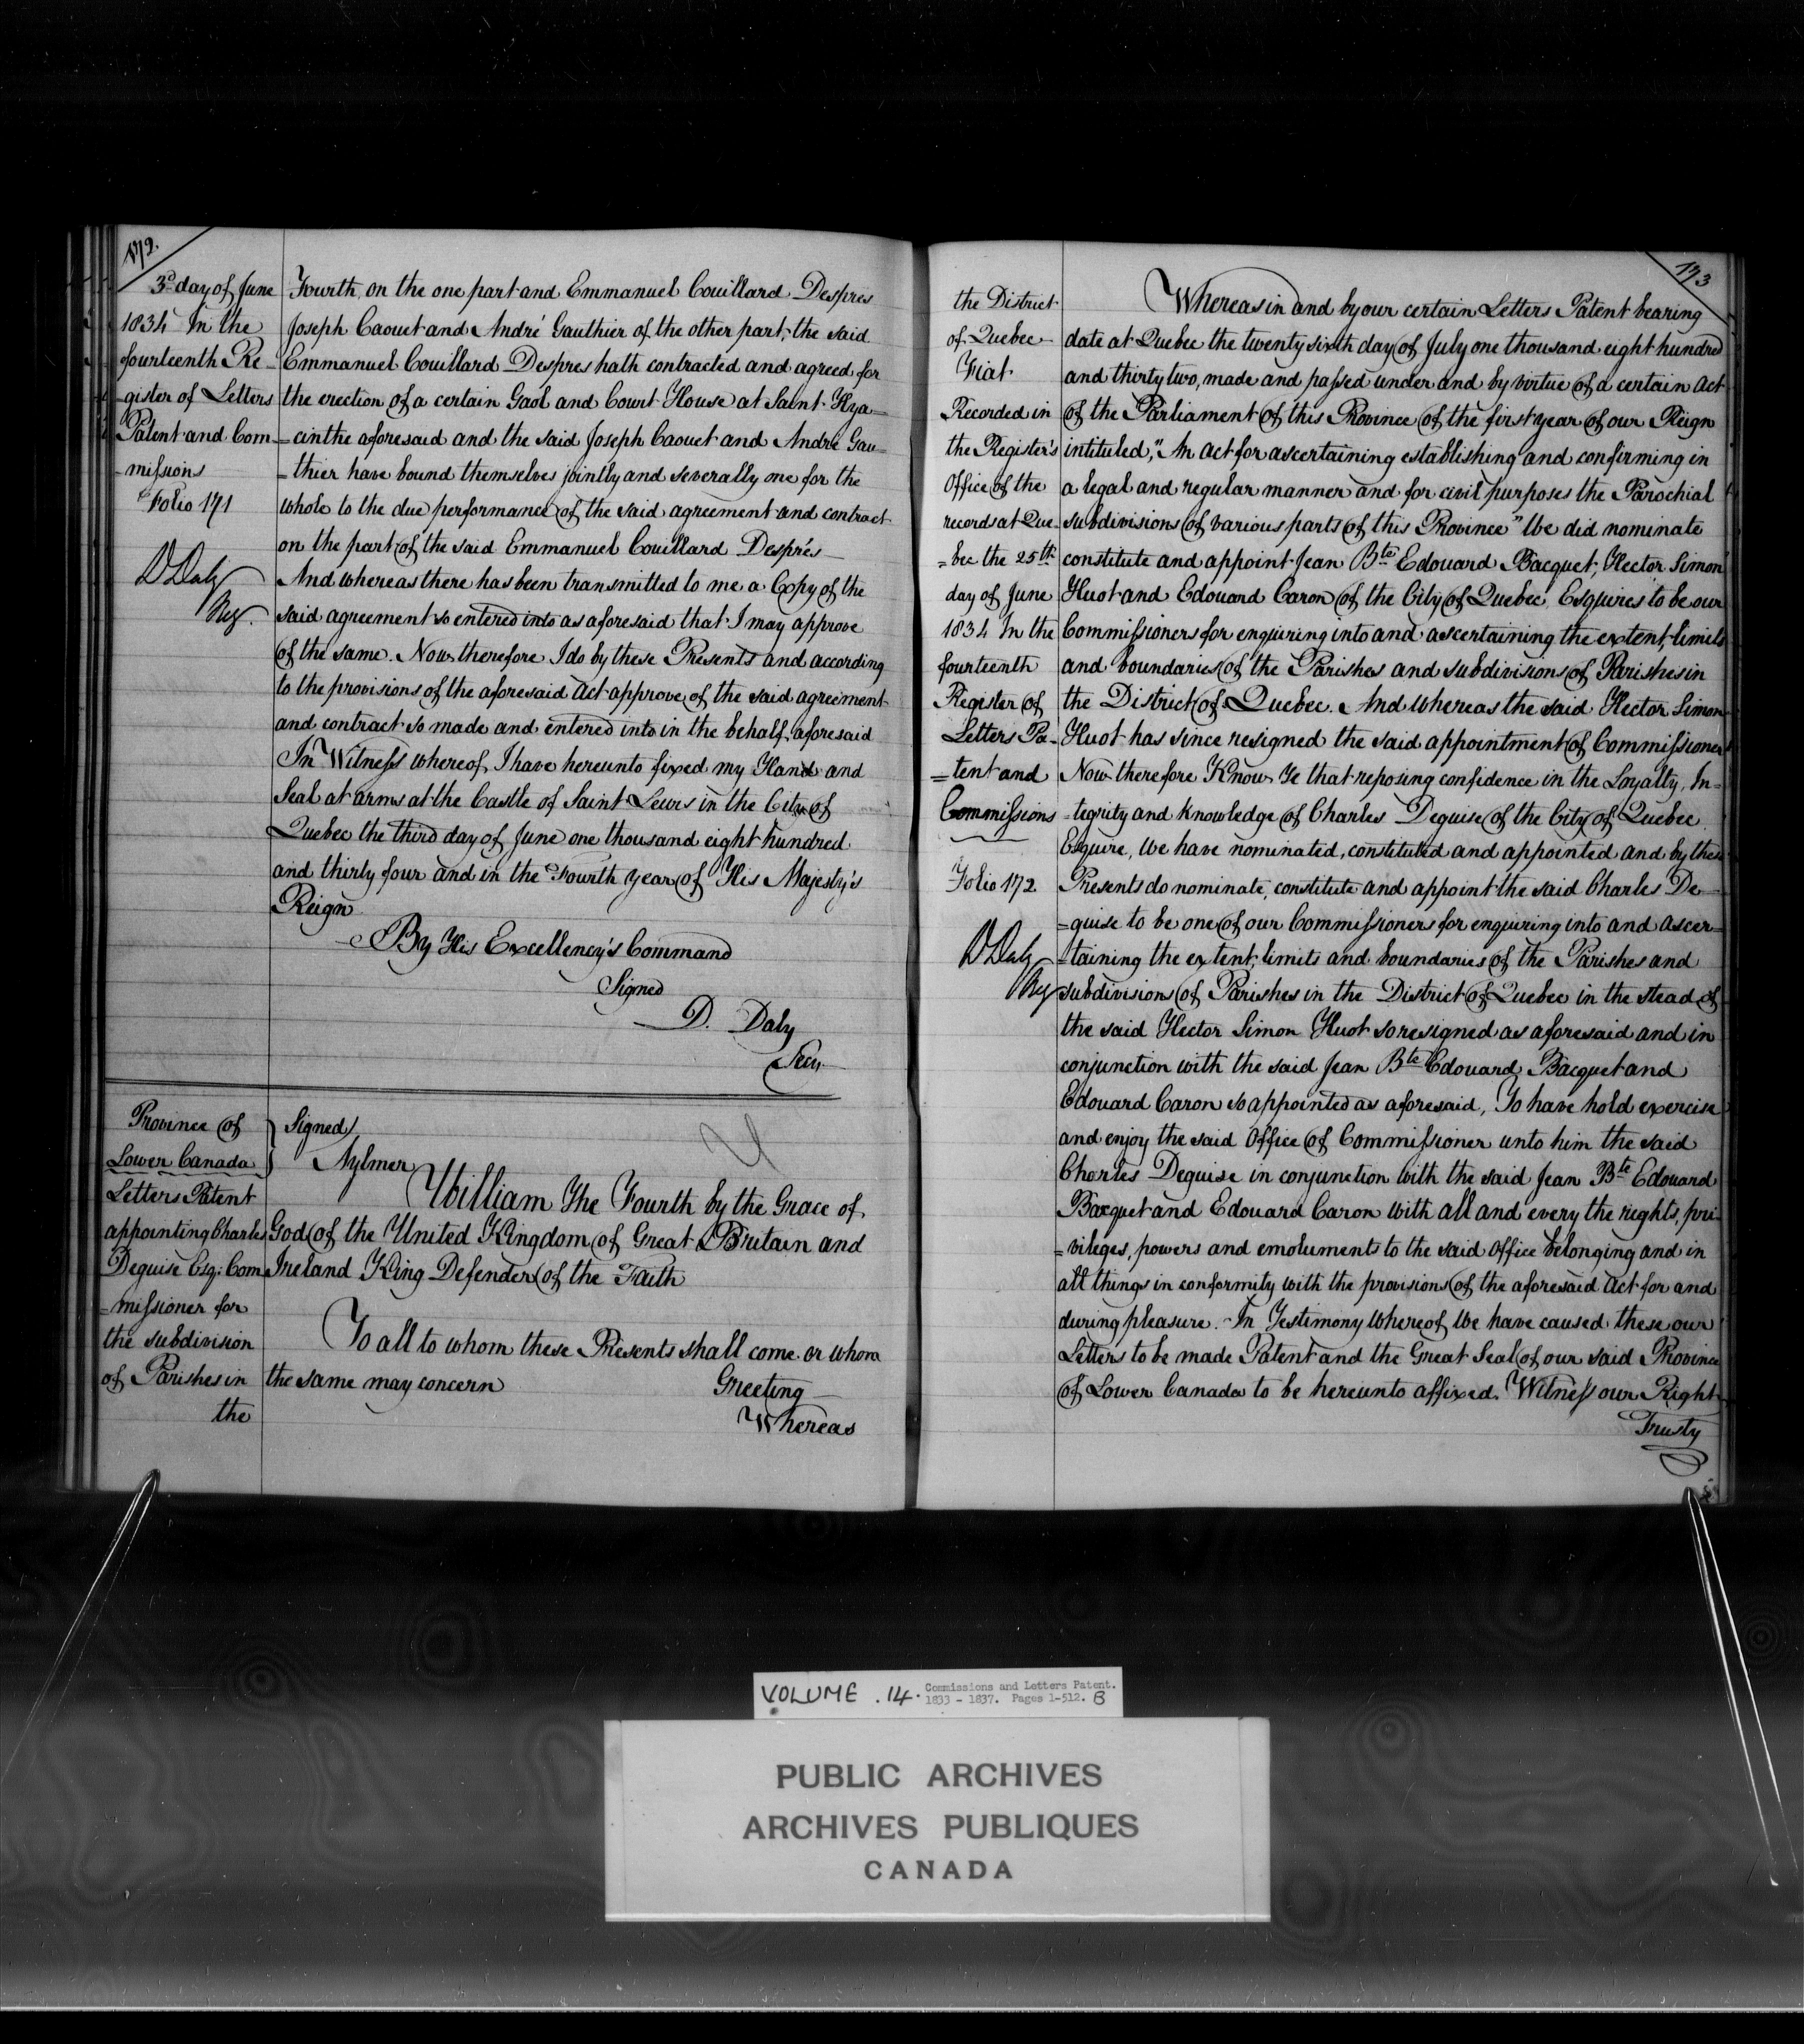 172.
3d day of June
1834 In the
fourteenth Re-
gister of Letters
Patent and Com-
missions
Folio 171
D Daly
Reg.
Fourth, on the one part and Emmanuel Couillard Despres
Joseph Caouet and André Gauthier of the other part, the said
Emmanuel Couillard Despres hath contracted and agreed for
the erection of a certain Gaol and Court House at Saint Hya-
=cinthe aforesaid and the said Joseph Caouet and André Gau=
=thier have bound themselves jointly and severally one for the
whole to the due performance of the said agreement and contract
on the part of the said Emmanuel Couillard Després
And whereas there has been transmitted to me a Copy of the
said agreement so entered into as aforesaid that I may approve
of the same. Now therefore I do by these Presents and according
to the provisions of the aforesaid Act approve of the said agreement
and contract so made and entered into in the behalf aforesaid
In Witness whereof, I have hereunto fixed my Hand and
Seal at arms at the Castle of Saint Lewis in the City of
Quebec the third day of June one thousand eight hundred
and thirty four and in the Fourth year of His Majesty's
Reign
By His Excellency's Command
Signed
D. Daly
Secy
Province of
Lower Canada
Letters Patent
appointing Charles
Deguise Esq: Com
=missioner for
the subdivision
of Parishes in
the
Signed/
Aylmer
William The Fourth by the Grace of
God of the United Kingdom of Great Britain and
Ireland King Defender of the Faith
To all to whom these Presents shall come or whom
the same may concern Greeting
Whereas
173
the District
of Quebec
Fiat
Recorded in
the Register's
Office of the
records at Que-
=bec the 25th
day of June
1834 In the
fourteenth
Register of
Letters Pa-
=tent and
Commissions
Folio 172
D Daly
Reg
Whereas in and by our certain Letters Patent bearing
date at Quebec the twenty sixth day of July one thousand eight hundred
and thirty two, made and passed under and by virtue of a certain Act
of the Parliament of this Province of the first year of our Reign
intituled, "An Act for ascertaining establishing and confirming in
a legal and regular manner and for civil purposes the Parochial
subdivisions of various parts of this Province" We did nominate
constitute and appoint Jean Bte Edouard Bacquet, Hector Simon
Huot and Edouard Caron of the City of Quebec, Esquires to be our
Commissioners for enquiring into and ascertaining the extent, limits
and boundaries of the Parishes and subdivisions of Parishes in
the District of Quebec. And whereas the said Hector Simon
Huot has since resigned the said appointment of Commissioner
Now therefore Know Ye that reposing confidence in the Loyalty, In=
=tegrity and knowledge of Charles Deguise of the City of Quebec
Esquire, We have nominated, constituted and appointed and by these
Presents do nominate, constitute and appoint the said Charles De-
=guise to be one of our Commissioners for enquiring into and ascer=
=taining the extent, limits and boundaries of the Parishes and
subdivisions of Parishes in the District of Quebec in the stead of
the said Hector Simon Huot so resigned as aforesaid and in
conjunction with the said Jean Bte Edouard Bacquet and
Edouard Caron so appointed as aforesaid, To have hold exercise
and enjoy the said Office of Commissioner unto him the said
Charles Deguise in conjunction with the said Jean Bte Edouard
Bacquet and Edouard Caron with all and every the rights, pri-
=vileges, powers and emoluments to the said office belonging and in
all things in conformity with the provisions of the aforesaid Act for and
during pleasure. In Testimony Whereof We have caused these our
Letters to be made Patent and the Great Seal of our said Province
of Lower Canada to be hereunto affixed. Witness our Right
Trusty
VOLUME .14. Commissions and Letters Patent.
1833 - 1837. Pages 1-512. B
PUBLIC ARCHIVES
ARCHIVES PUBLIQUES
CANADA